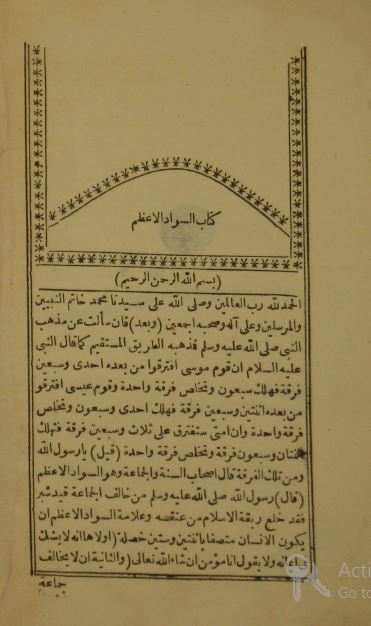 كتاب السواد الاعظم
(بسم الله الرحمن الرحيم)
الحمد لله رب العالمين وصلى الله على سيدنا محمد خاتم النبيين
والمرسلين وعلى آله وصحبه اجمعين (وبعد) فان سألت عن مذهب
النبي صلى الله عليه وسلم فذهبه الطريق المستقيم كما قال النبي
عليه السلام ان قوم موسى افترقوا من بعده احدى وسبعين
فرقة فهلك سبعون وتخلص فرقة واحدة وقوم عيسى افترقو
من بعده اثنتين وسبعين فرقة فهلك احدى وسبعون وتخلص
فرقة واحدة وان امتى ستفترق على ثلاث وسبعين فرقة فتهلك
اثنتان وسبعون فرقة وتخلص فرقة واحدة (قيل) يا رسول الله
ومن تلك الفرقة قال اصحاب السنة والجماعة وهو السواد الاعظم
(قال) رسول الله صلى الله عليه وسلم من خالف الجماعة قيد شبر
فقد خلع ربقة الاسلام من عنقه وعلامة السواد الاعظم ان
يكون الانسان متصفا باثنتين وستين خصلة (اولاها) انه لا يشك
فى ايمانه ولا يقول انا مؤمن ان شاء الله تعالى (والثانية) ان لا يخالف
جماعة
Acti
Go to